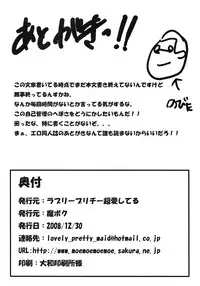 あとがきっ!!
のびた
この文章書いてる時点でまだ本文書き終えてないんですけど
無事終ってるんすかね。
なんか毎回時間ないとか言ってる気がするな。
この自己管理のへぼさをどうにかしたいもんだ!!
困ったな、特に書くことがないぞ、、、
まぁ、エロ同人誌のあとがきなんて誰も読まないからいいだろ!!
奥付
発行元:ラブリープリチー超愛してる
発行者:魔ボク
発行日:2008/12/30
連絡先:lovely_pretty_maid@hotmail.co.jp
URL:http://www.moemoemoemoe.sakura.ne.jp
印刷:大和印刷所様